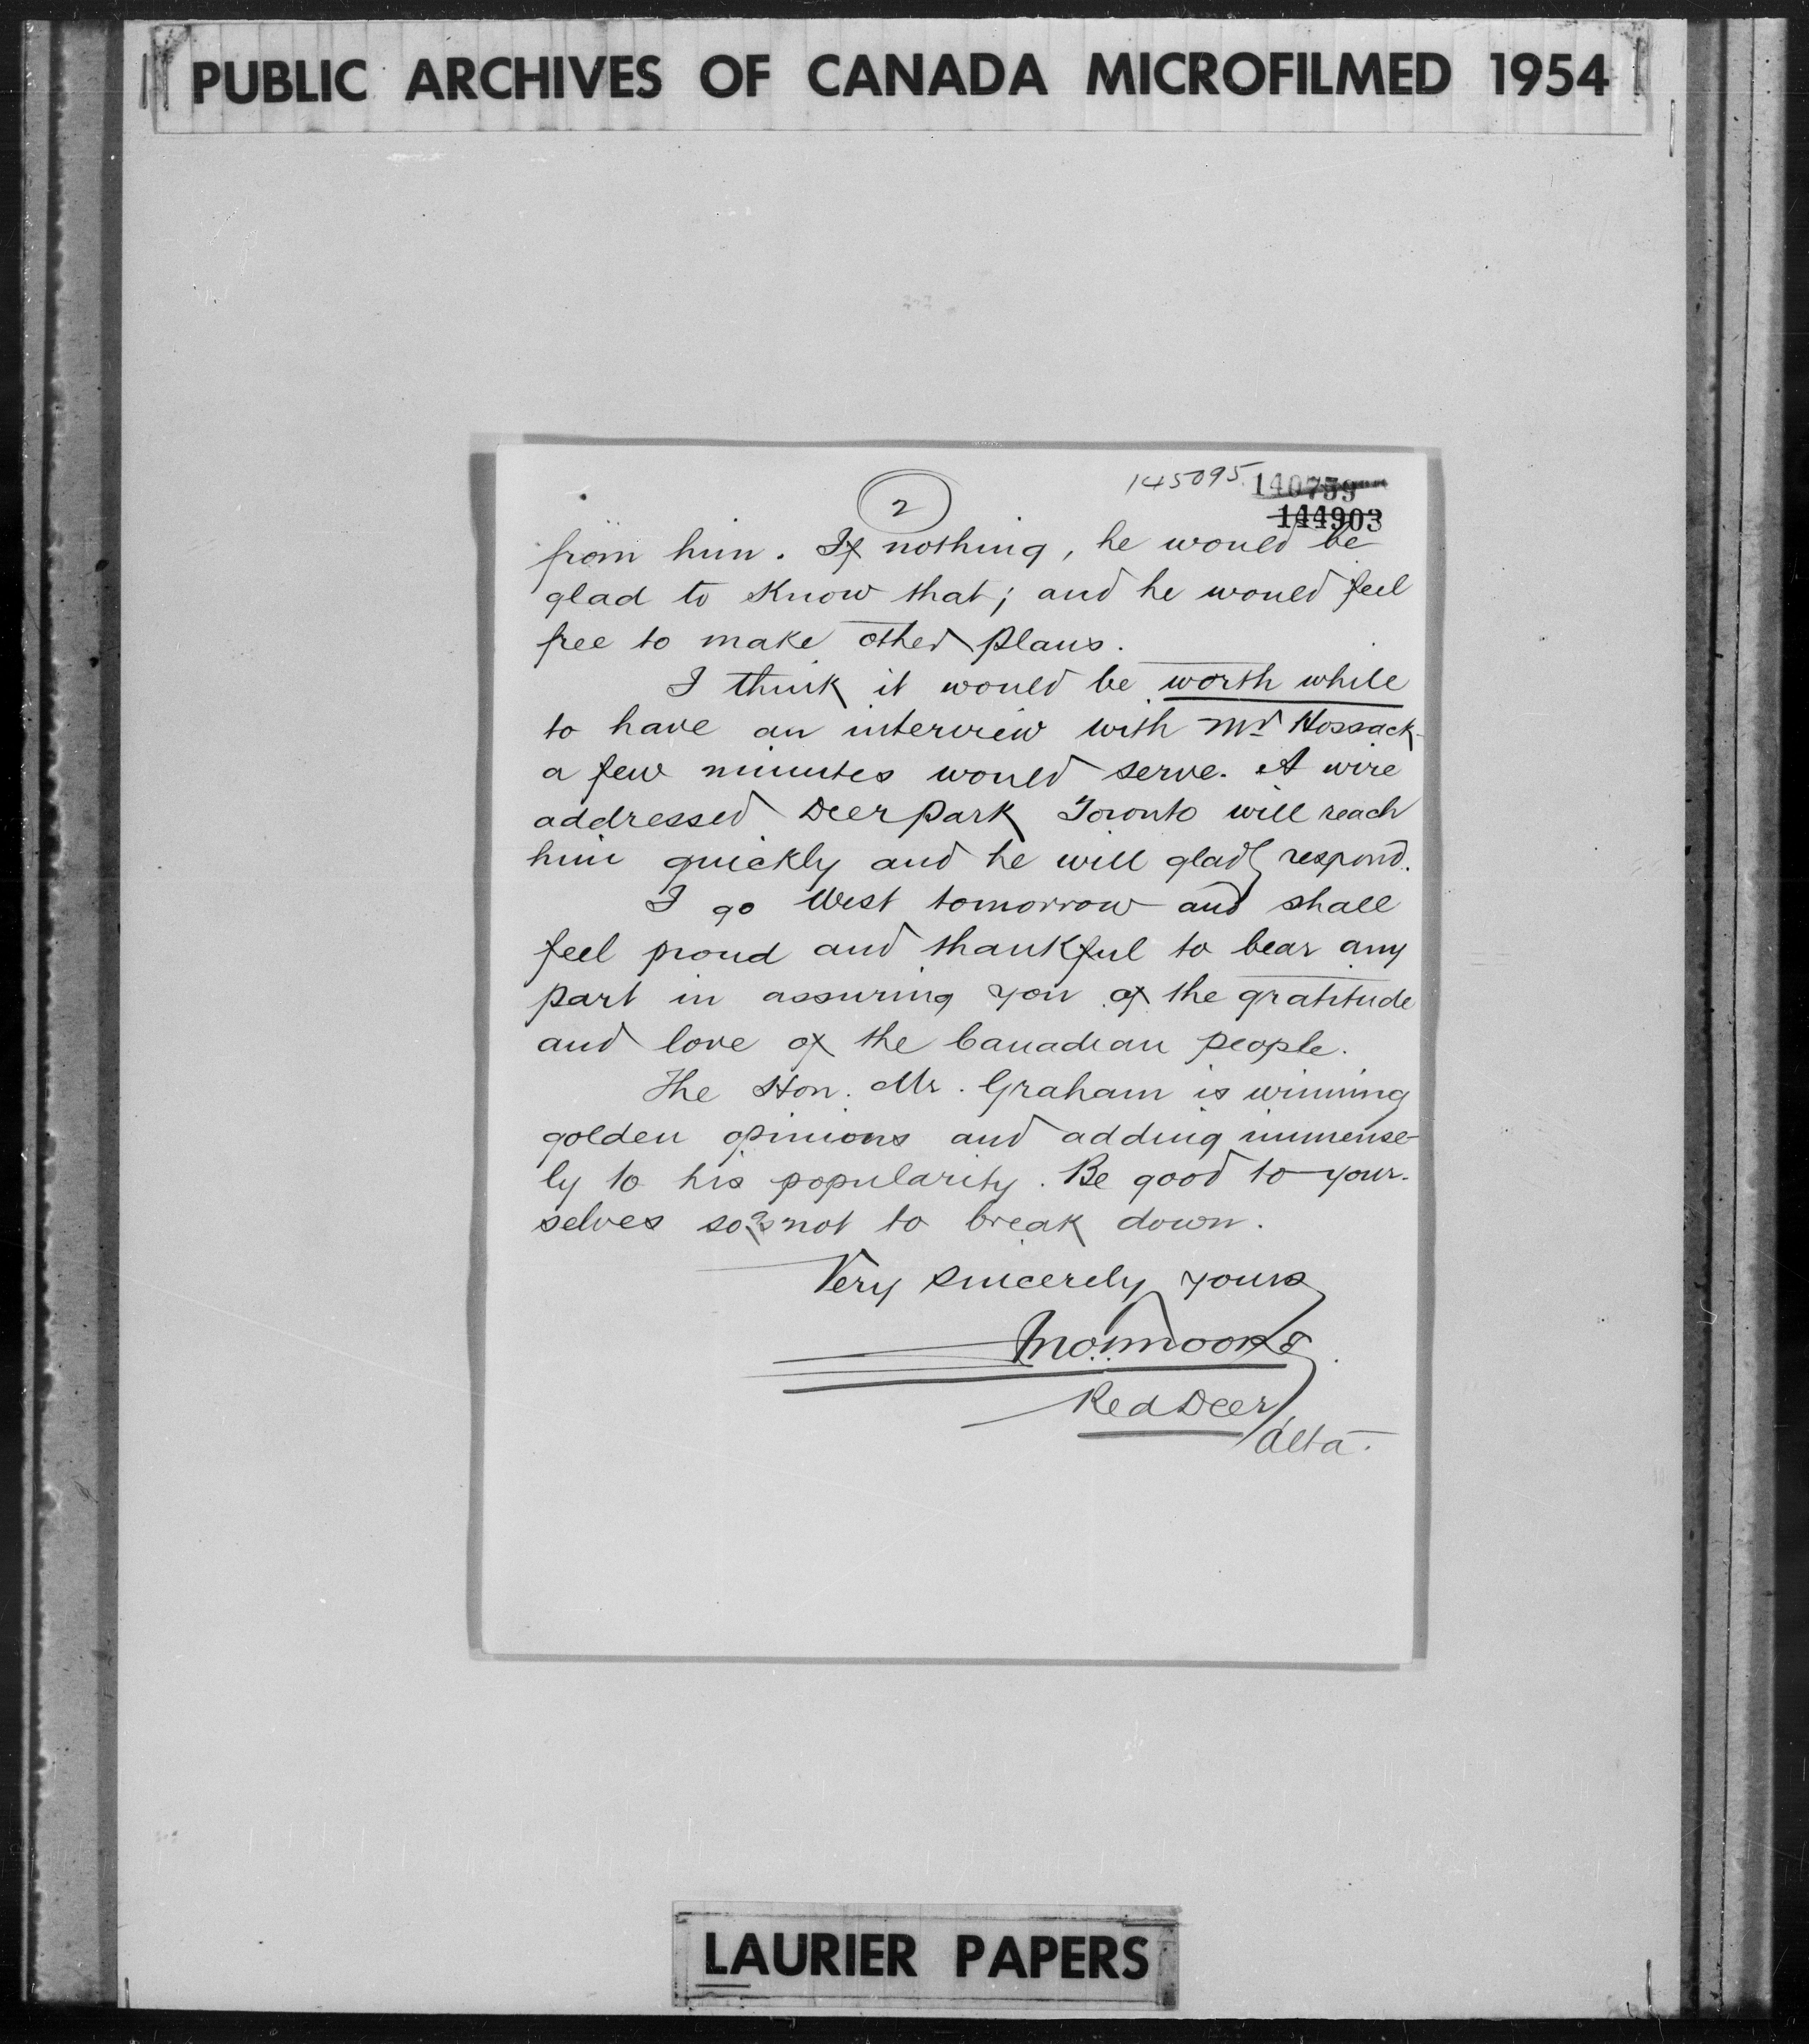 PUBLIC ARCHIVES OF CANADA MICROFILMED 1954
145095. 140759
2
144903
from him. If nothing, he would be
glad to know that; and he would feel
free to make other plans.
I think it would be worth while
to have an interview with Mr Hossack-
a few minutes would serve. A wire
addressed Deer Park Toronto will reach
him quickly and he will gladly respond.
I go West tomorrow and shall
feel proud and thankful to bear any
part in assuring you of the gratitude
and love of the Canadian people.
The Hon. Mr. Graham is winning
golden opinions and adding immense-
ly to his popularity. Be good to your-
selves so as not to break down.
Very sincerely yours
Red Deer
Alta.
LAURIER PAPERS